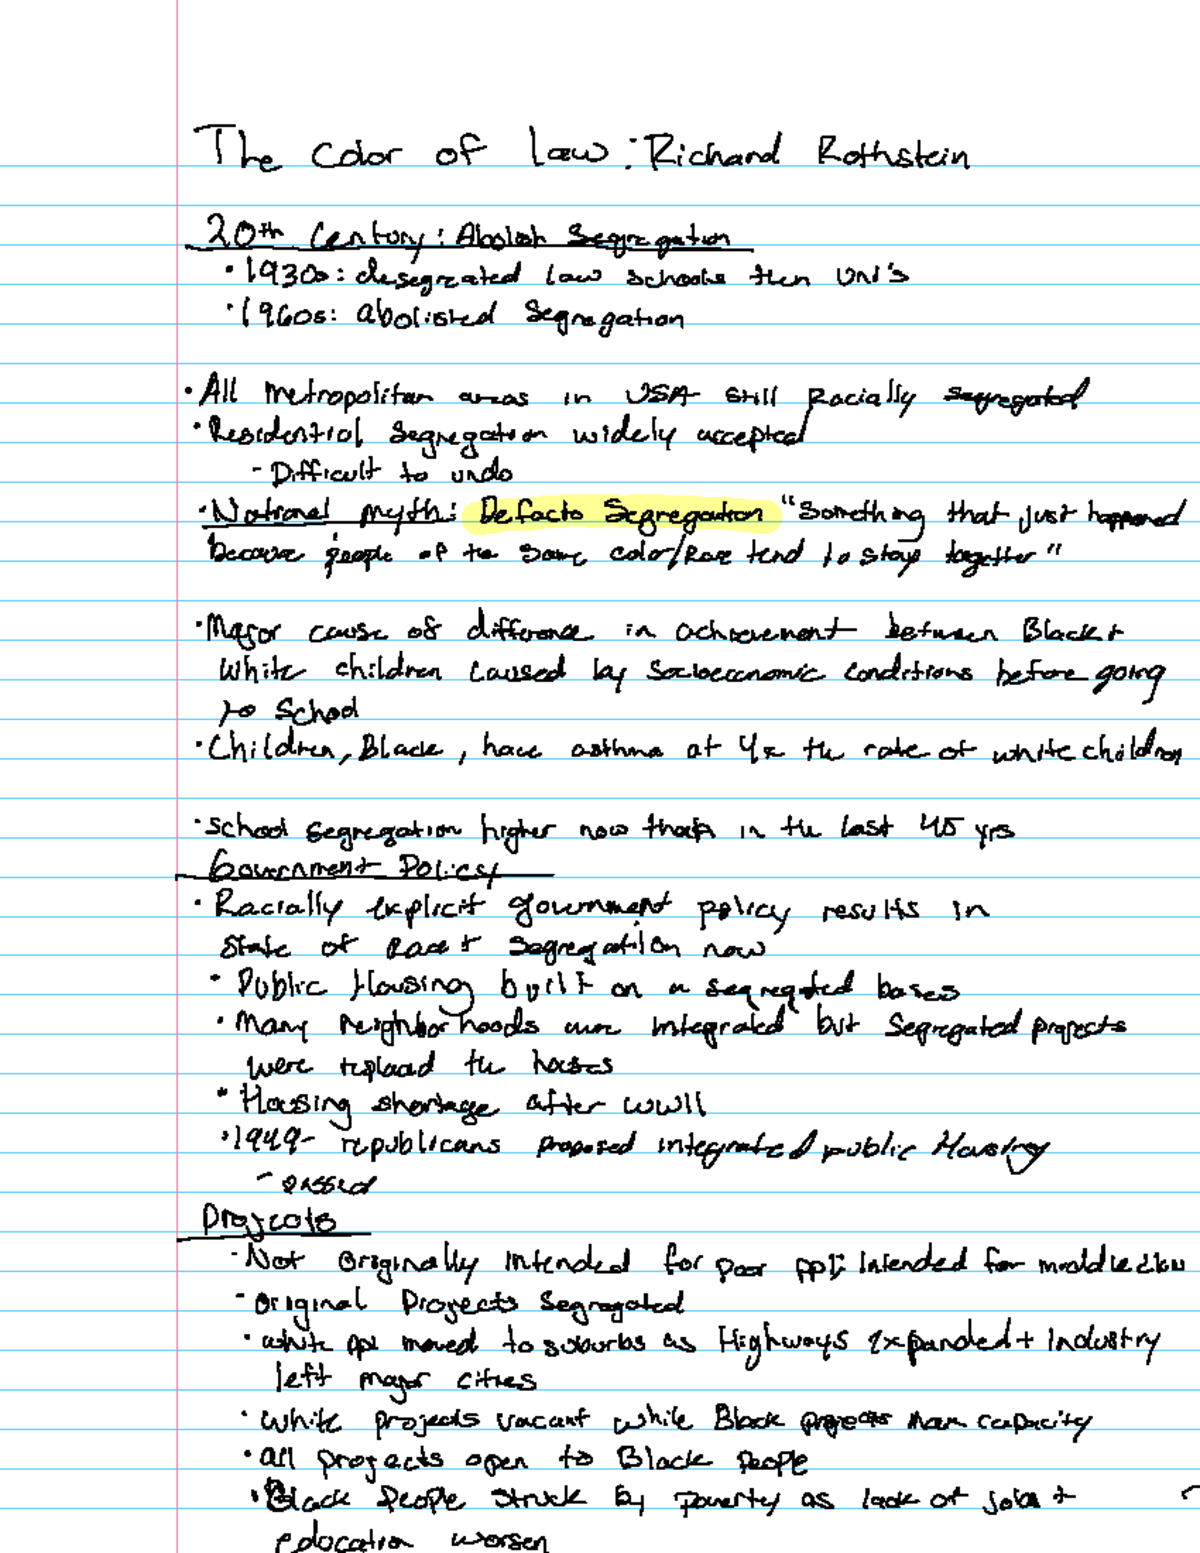 The Color of Law: Richard Rothstein
20th Century: Abolish Segregation
• 1930s: desegrated law schools then Uni's
• 1960s: abolished Segregation
• All Metropolitan areas in USA still Racially segregated
• Residential Segregation widely accepted
- Difficult to undo
• National Myth: Defacto Segregation "Something that just happened
because people of the same color/Race tend to stay together"
• Major cause of difference in achievement between Black +
White children caused by Socioeconomic conditions before going
to School
• Children, Black, have asthma at 4x the rate of white children
• School segregation higher now than in the last 45 yrs
Government Policy
• Racially explicit government policy results in
State of Race + Segregation now
• Public Housing built on a segregated bases
• Many neighborhoods were integrated but Segregated projects
were replaced the houses
• Housing shortage after WWII
• 1949- republicans proposed integrated public Housing
- passed
Projects
- Not Originally intended for poor ppl; Intended for middle class
- Original Projects Segregated
• white ppl moved to suburbs as Highways expanded + Industry
left major cities
• White projects vacant while Black projects capacity
• all projects open to Black People
• Black People struck by poverty as lack of jobs +
education worsen